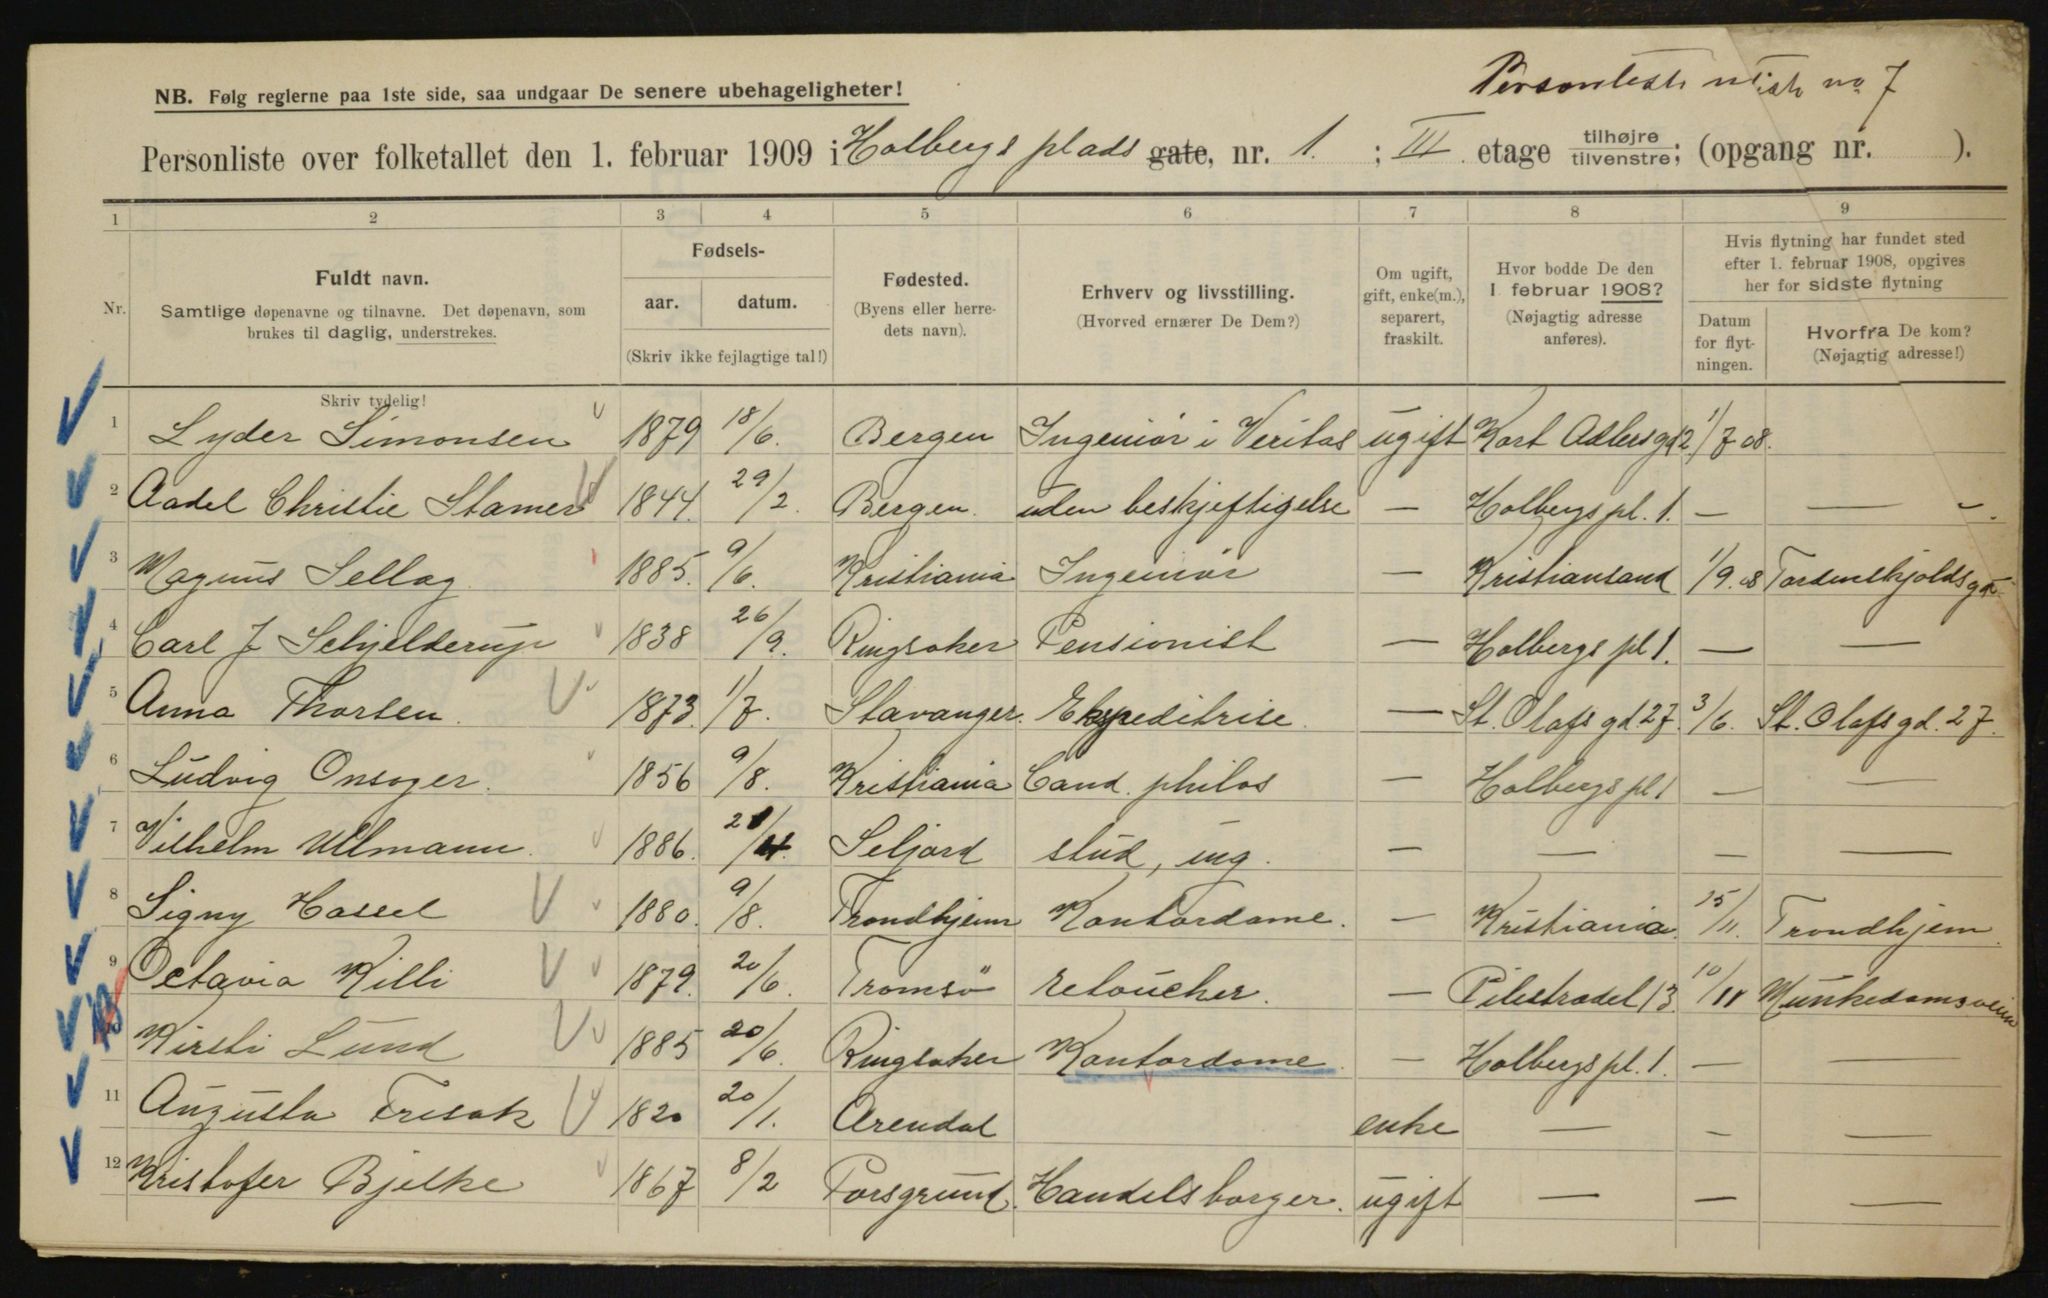 Personliste no 7
NB. Følg reglerne paa 1ste side, saa undgaar De senere ubehageligheter!
Personliste over folketallet den 1. februar 1909 i Holbergs plads gate, nr. 1. ; III etage tilhøjre tilvenstre; (opgang nr. ).
1 2 3 4 5 6 7 8 9
Nr.
Fuldt navn.
Samtlige døpenavne og tilnavne. Det døpenavn, som
brukes til daglig, understrekes.
Skriv tydelig!
Fødsels-
aar. datum.
(Skriv ikke fejlagtige tal!)
Fødested.
(Byens eller herre-
dets navn).
Erhverv og livsstilling.
(Hvorved ernærer De Dem?)
Om ugift,
gift, enke(m.),
separert,
fraskilt.
Hvor bodde De den
1 februar 1908?
(Nøjagtig adresse
anføres).
Hvis flytning har fundet sted
efter 1. februar 1908, opgives
her for sidste flytning
Datum
for flyt-
ningen.
Hvorfra De kom?
(Nøjagtig adresse!)
1 Lyder Simonsen 1879 18/6. Bergen Ingeniør i Veritas ugift Kort Adlersgd 2 1/7 08.
2 Aadel Christie Stamer 1844. 29/2. Bergen. uden beskjeftigelse — Holbergs pl. 1. — —
3 Magnus Sellag 1885. 9/6. Kristiania Ingeniør — Kristiansand 1/9. 08 Tordenskjoldsgd.
4 Carl J Schjelderup 1838 26/9. Ringsaker Pensionist — Holbergs pl 1. — —
5 Anna Thorsen. 1873. 1/7. Stavanger. Ekspeditrise. — St. Olafs gd 27. 3/6. St. Olafs gd. 27.
6 Ludvig Onsager. 1856 9/8. Kristiania Cand. philos — Holbergs pl 1 — —
7 Vilhelm Ullmann. 1886. 21/4. Seljord stud, ing. — — — —
8 Signy Hassel 1880. 9/8. Trondhjem Kontordame. — Kristiania. 15/11. Trondhjem.
9 Octavia Killi 1879. 20/6. Tromsö retoucher. — Pilestrædet 13. 10/11 Munkedamsveien
10 Kirsti Lund 1885 20/6. Ringsaker Kontordame. — Holbergs pl. 1. — —
11 Augusta Fresak 1820 20/1. Arendal enke — — —
12 Kristofer Bjelke 1867 8/2 Porsgrund. Handelsborger. ugift — — —